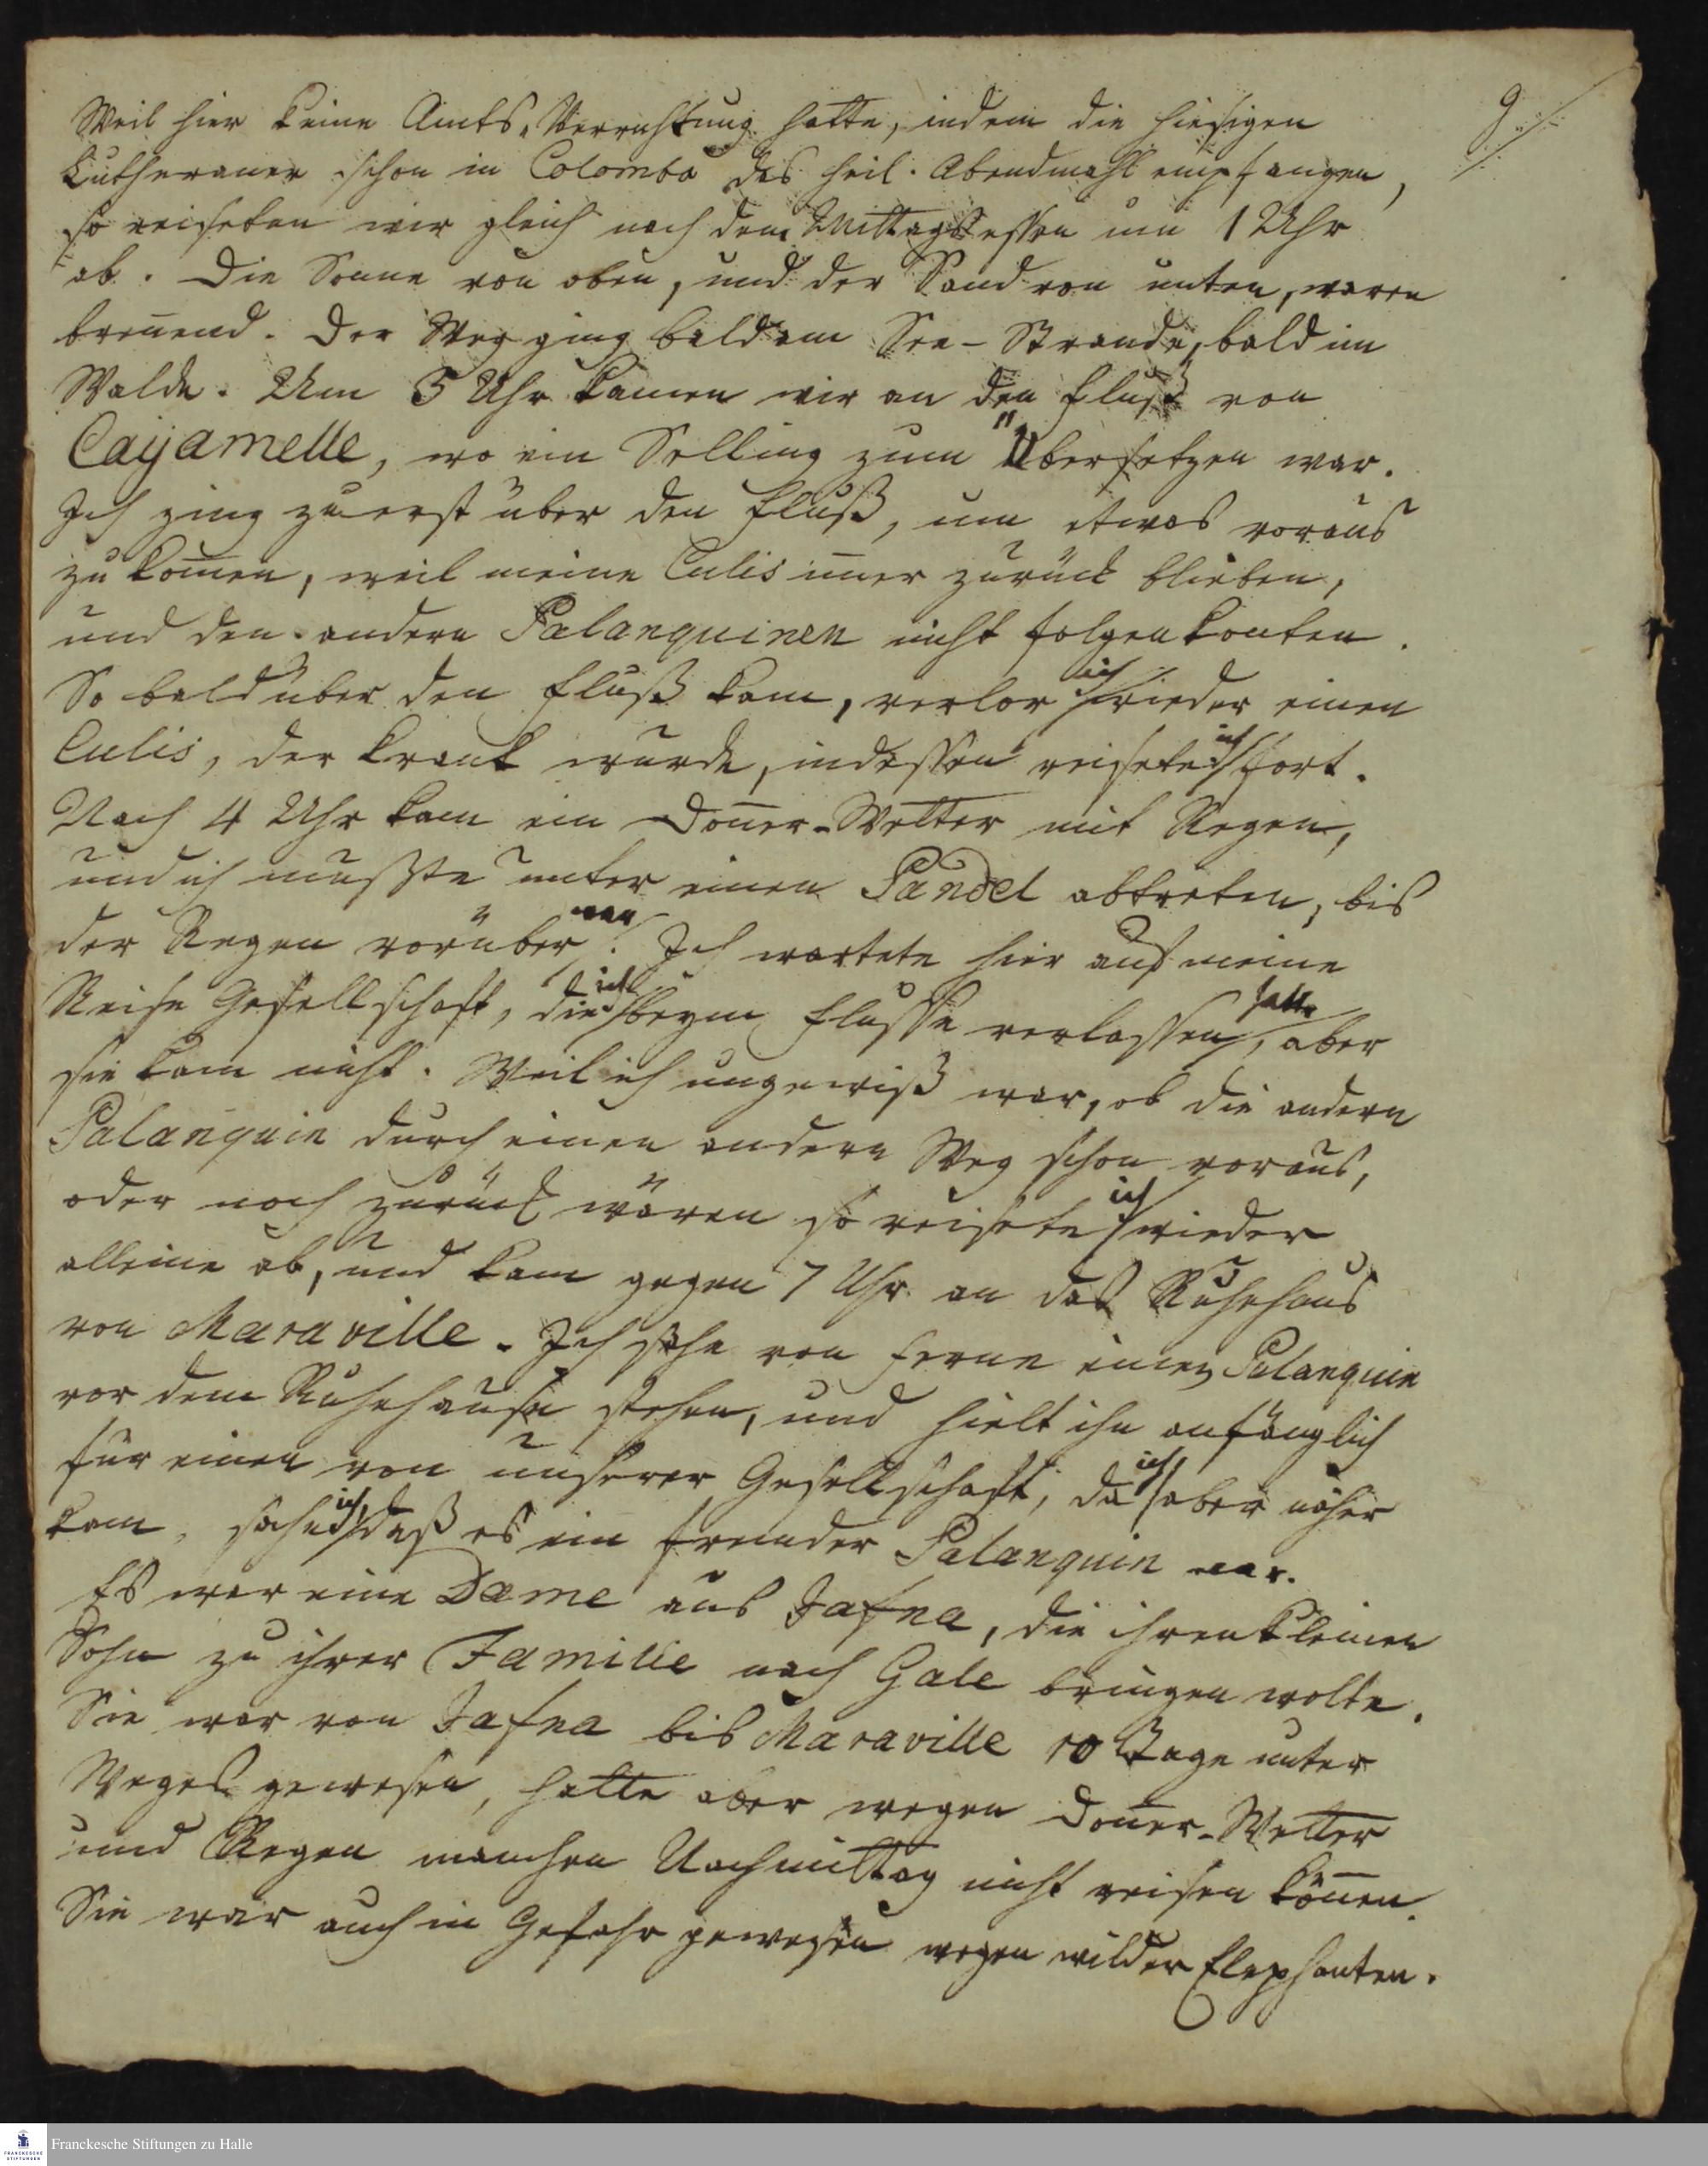 9
Weil hier keine Amts-Verrichtung hatte, indem die hiesigen
Lutheraner schon in Colombo das heil. Abendmahl empfangen,
so reiseten wir gleich nach dem Mittagsessen um 1 Uhr
ab. Die Sonne von oben, und der Sand von unten, waren
breñend. Der Weg ging bald am See-Strande, bald im
Walde. Um 3 Uhr kamen wir an den Fluß von
Cayamelle, wo ein Selling zum Übersetzen war.
Ich ging zuerst über den Fluß, um etwas voraus
zu kom̄en, weil meine Culis im̄er zurück blieben,
und den andern Palanquinen nicht folgen konten.
So bald über den Fluß kam, verlor ich wieder einen
Culis, der krank wurde, indessen reisete ich fort.
Nach 4 Uhr kam ein Doñer-Wetter mit Regen,
und ich mußte unter einen Pandel abtreten, bis
der Regen vorüber war. Ich wartete hier auf meine
Reise Gesellschaft, die ich beym Flusse verlassen hatte, aber
sie kam nicht. Weil ich ungewiß war, ob die andern
Palanquin durch einen andern Weg schon voraus,
oder noch zurück wären so reisete ich wieder
alleine ab, und kam gegen 7 Uhr an das Ruhehaus
von Maraville. Ich sahe von Ferne einen Palanquin
vor dem Ruhehause stehen, und hielt ihn anfänglich
für einen von unserer Gesellschaft, da ich aber näher
kam, sahe ich daß es ein fremder Palanquin war.
Es war eine Dame aus Jafna, die ihren kleinen
Sohn zu ihrer Familie nach Gale bringen wolte.
Sie war von Jafna bis Maraville 10 Tage unter
Weges gewesen, hatte aber wegen Doñer-Wetter
und Regen manchen Nachmittag nicht reisen köñen.
Sie war auch in Gefahr gewesen wegen wilder Elephanten.
FRANCKESCHE STIFTUNGEN
Franckesche Stiftungen zu Halle